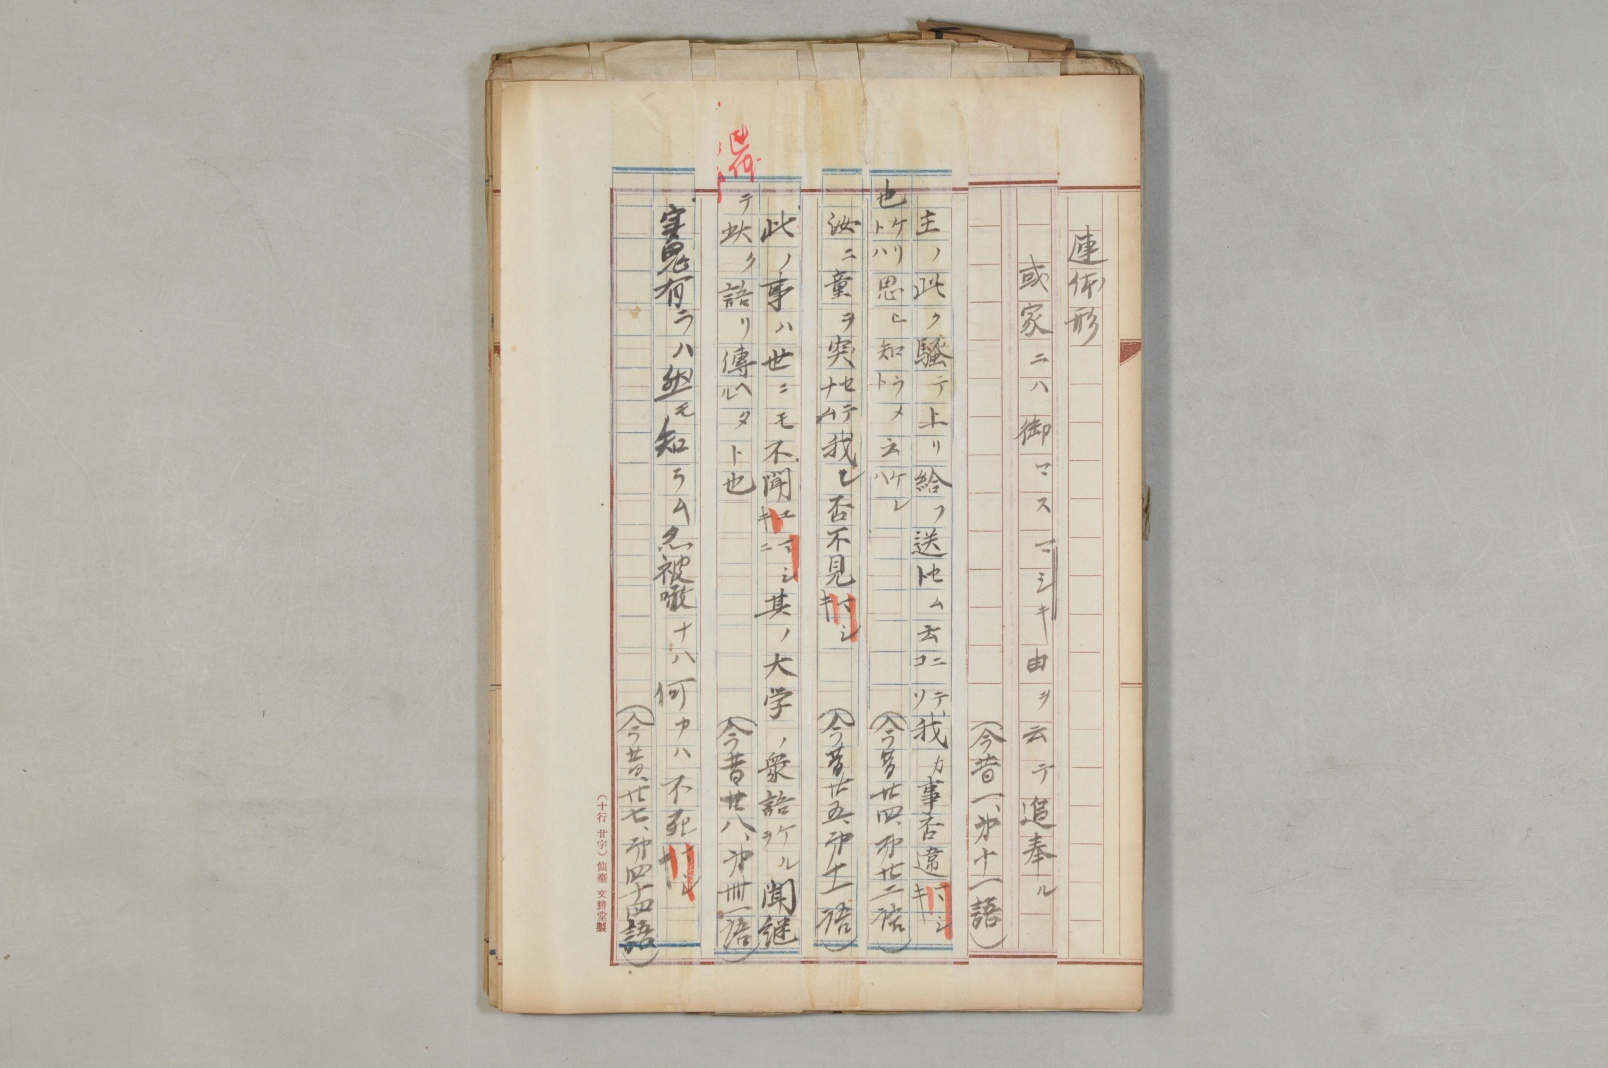 連体形
或家ニハ御マスマシキ由ヲ云テ追奉ル
(今昔一、第十一語)
主ノ此ク騒テ上リ給フ送セムト云ニコリテ我カ事否違マシキ
也ケリトハ思ヒ知ラメト云ケレハ
(今昔廿四、第廿二語)
汝ニ童ヲ突セテナム我レ否不見マシキ
(今昔廿五、第十一語)
此ノ事ハ世ニモ不聞エマシキニ其ノ大学ノ衆語ケルヲ聞継
テ此ク語リ傳ヘタルト也
(今昔廿八、第卅一語)
実鬼有ラハ然モ知ラム忽被噉ナハ何カハ不死マシキ
(今昔、廿七、第四十四語)
(十行 廿字) 仙臺 文勝堂製